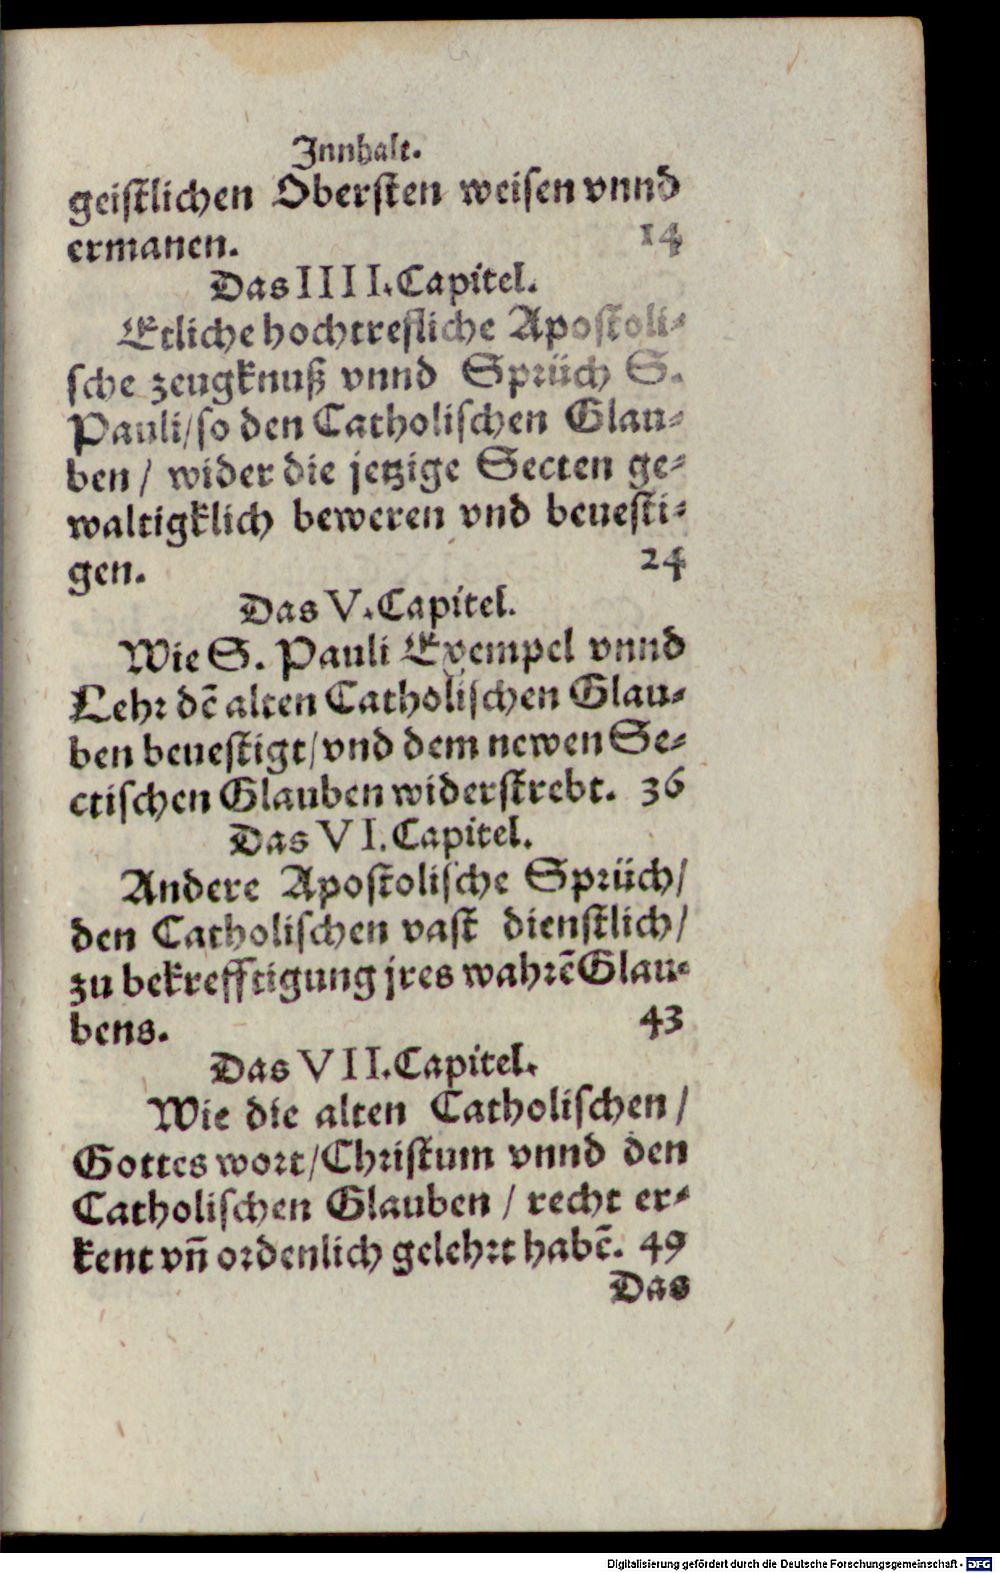 Innhalt.
geistlichen Obersten weisen vnnd
ermanen. 14
Das IIII. Capitel.
Etliche hochtrefliche Apostoli-
sche zeugknuß vnnd Sprüch S.
Pauli/so den Catholischen Glau-
ben / wider die jetzige Secten ge-
waltigklich beweren vnd beuesti-
gen. 24
Das V. Capitel.
Wie S. Pauli Exempel vnnd
Lehr dē alten Catholischen Glau-
ben beuestigt/vnd dem newen Se-
ctischen Glauben widerstrebt. 36
Das VI. Capitel.
Andere Apostolische Sprüch/
den Catholischen vast dienstlich/
zu bekrefftigung jres wahrē Glau-
bens. 43
Das VII. Capitel.
Wie die alten Catholischen /
Gottes wort/Christum vnnd den
Catholischen Glauben / recht er-
kent vñ ordenlich gelehrt habē. 49
Das
Digitalisierung gefördert durch die Deutsche Forschungsgemeinschaft - DFG